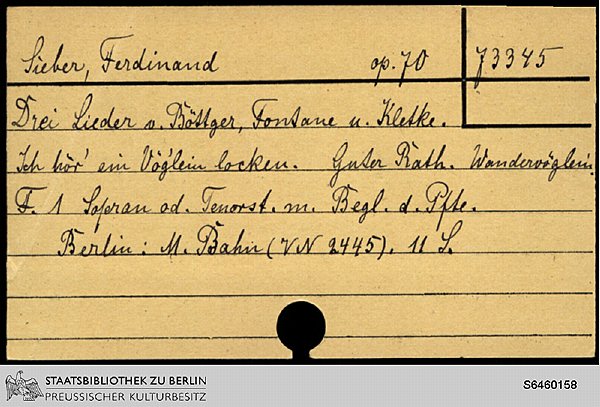 Sieber, Ferdinand op. 70 73345
Drei Lieder v. Böttger, Fontane u. Kletke.
Ich hör' ein Vög'lein locken. Guter Rath. Wandervöglein.
F. 1 Sopran od. Tenorst. m. Begl. d. Pfte.
Berlin: M. Bahn (VN 2445). 11 S.
STAATSBIBLIOTHEK ZU BERLIN
PREUSSISCHER KULTURBESITZ
S6460158